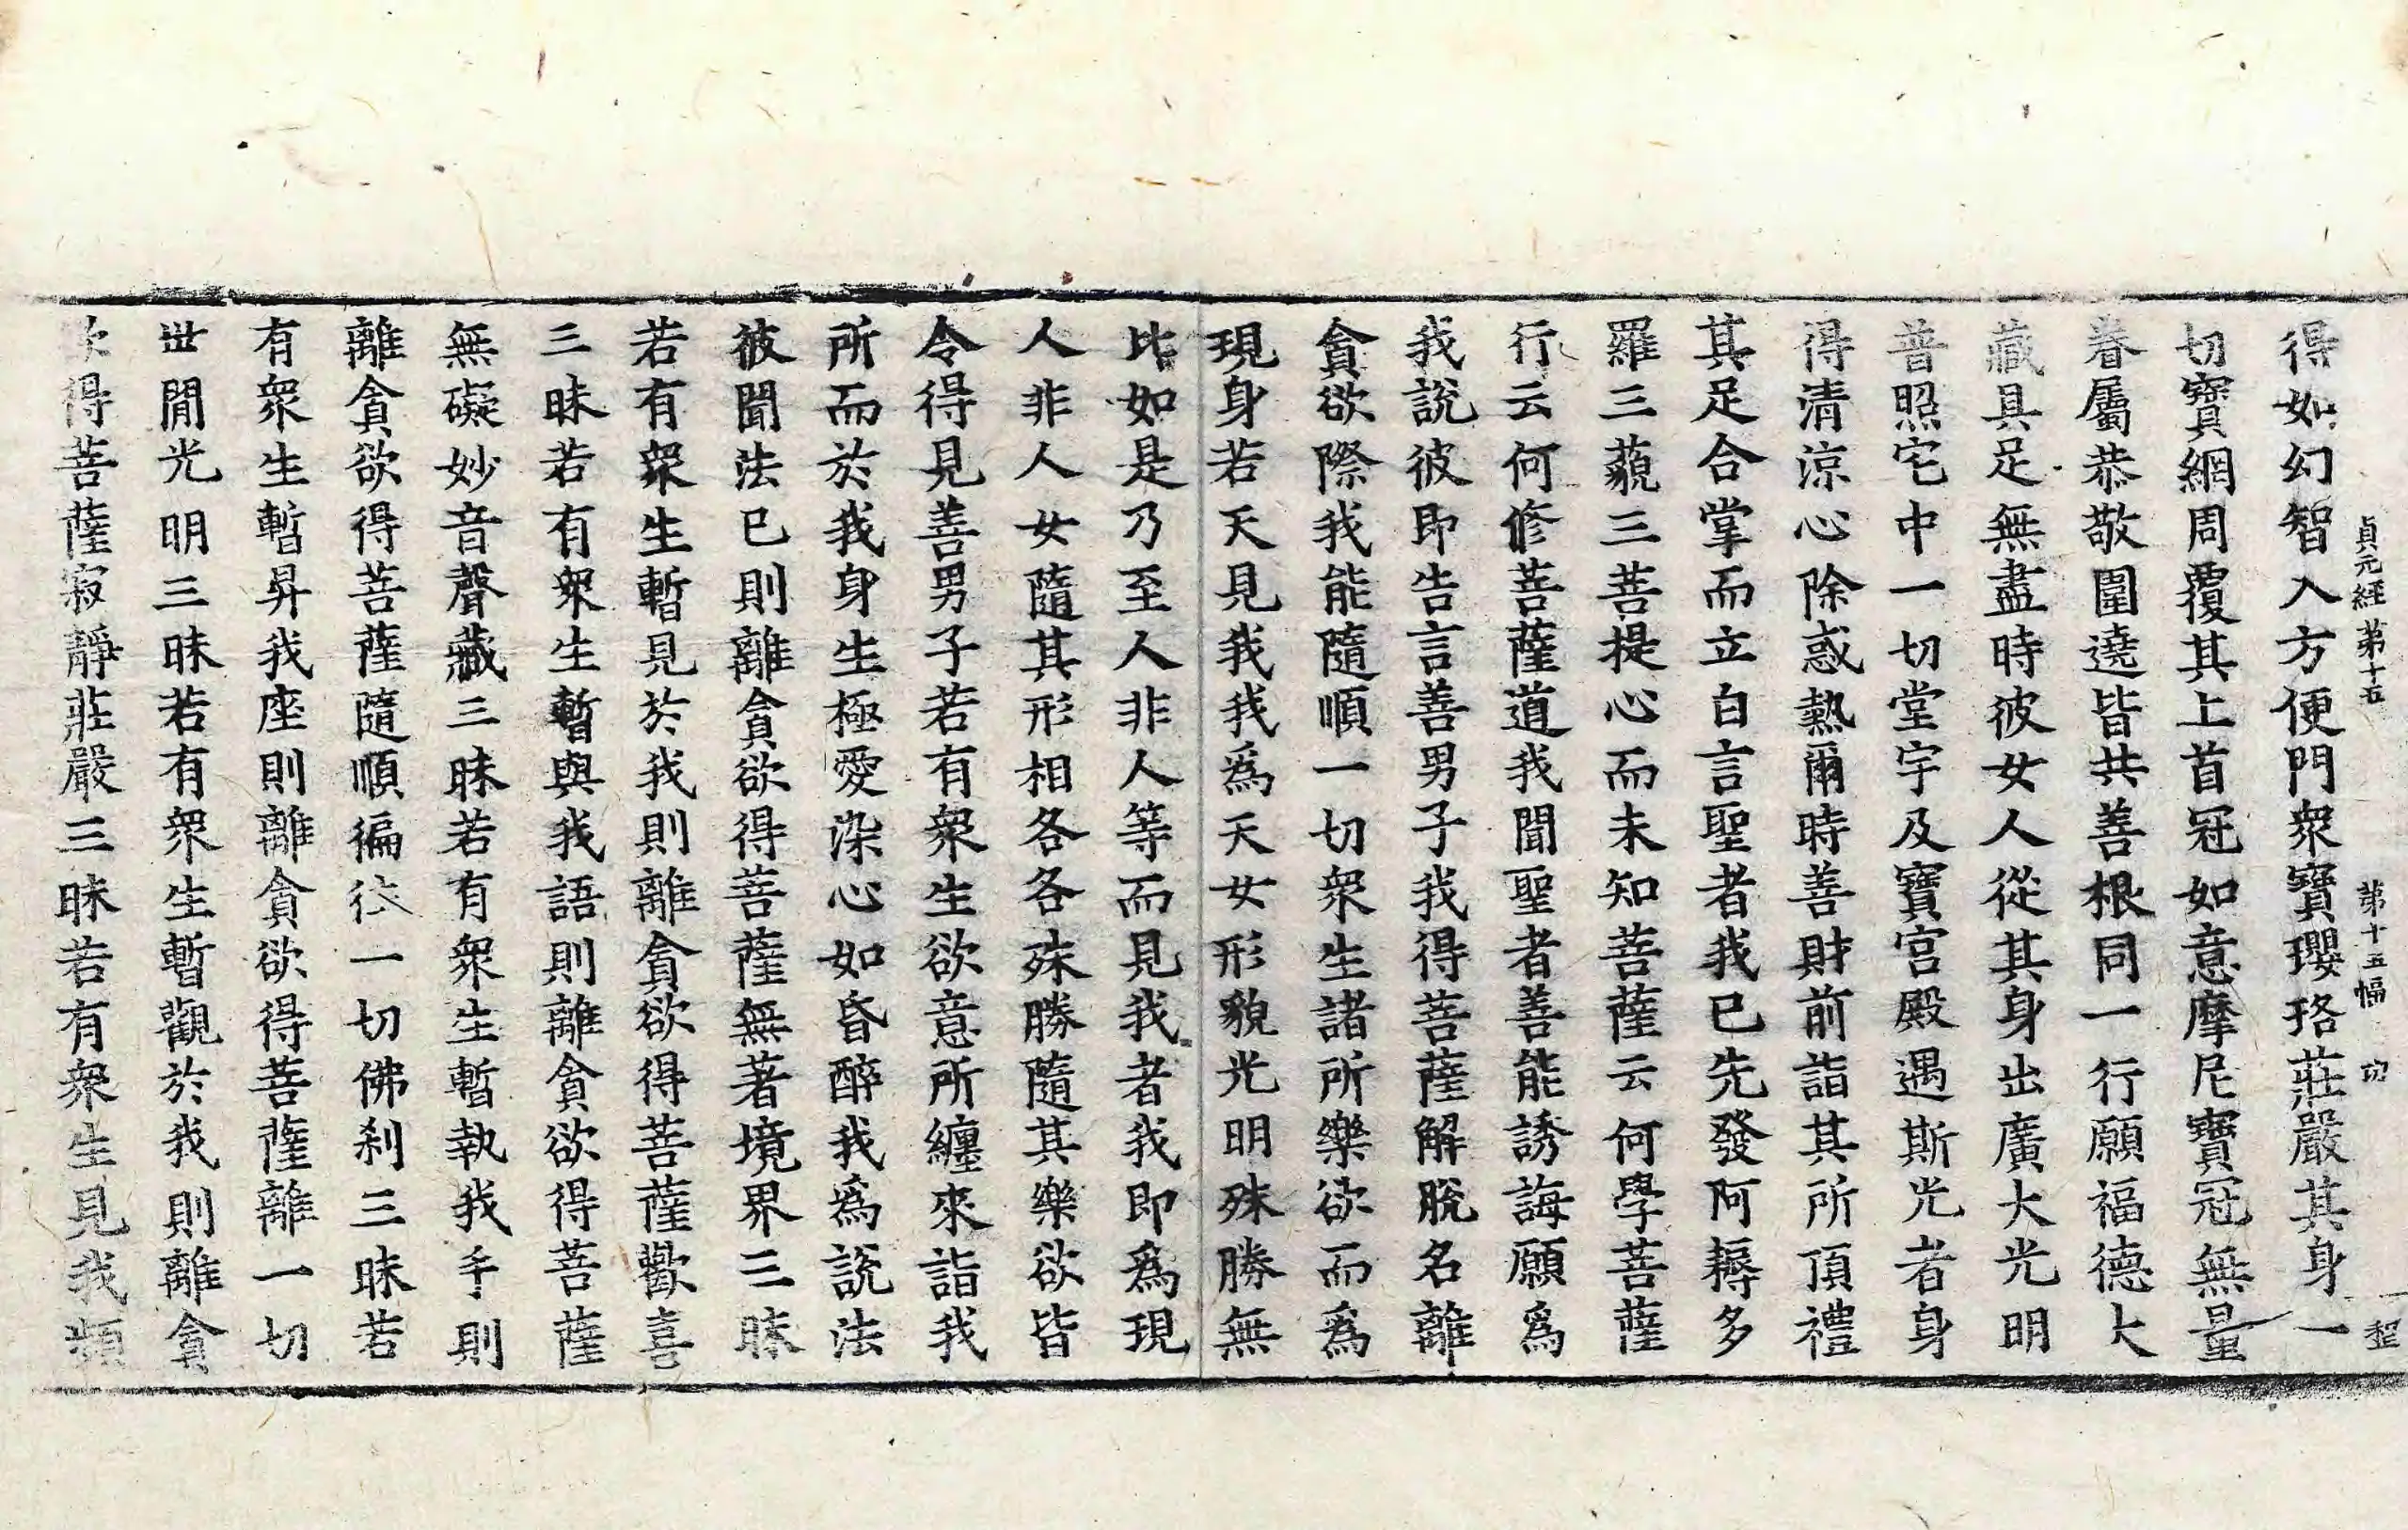 貞元經第十五 第十五幅 㓛 程
得如幻智入方便門衆寶瓔珞莊嚴其身一
切寶網周覆其上首冠如意摩尼寶冠無量
眷屬恭敬圍遶皆共善根同一行願福德大
藏具足無盡時彼女人從其身出廣大光明
普照宅中一切堂宇及寶宮殿遇斯光者身
得清涼心除惑熱爾時善財前詣其所頂禮
其足合掌而立白言聖者我已先發阿耨多
羅三藐三菩提心而未知菩薩云何學菩薩
行云何修菩薩道我聞聖者善能誘誨願爲
我說彼即告言善男子我得菩薩解脫名離
貪欲際我能隨順一切衆生諸所樂欲而爲
現身若天見我我爲天女形貌光明殊勝無
比如是乃至人非人等而見我者我即爲現
人非人女隨其形相各各殊勝隨其樂欲皆
令得見善男子若有衆生欲意所纏來詣我
所而於我身生極愛染心如昏醉我爲說法
彼聞法已則離貪欲得菩薩無著境界三昧
若有衆生暫見於我則離貪欲得菩薩歡喜
三昧若有衆生暫與我語則離貪欲得菩薩
無礙妙音聲藏三昧若有衆生暫執我手則
離貪欲得菩薩隨順徧往一切佛剎三昧若
有衆生暫昇我座則離貪欲得菩薩離一切
世閒光明三昧若有衆生暫觀於我則離貪
欲得菩薩寂靜莊嚴三昧若有衆生見我頻